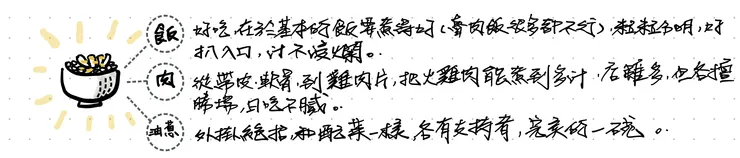 飯 好吃,在於基本的飯要煮得好(魯肉飯很多都不行),粒粒分明,好
扒入口,汁不沒爛。
肉 從帶皮、軟骨,到雞肉片,把火雞肉能煮到多汁,店雖多,也各擅
勝場,日吃不膩。
油蔥 外掛絕招,和配菜一樣,各有支持者,完美的一碗。